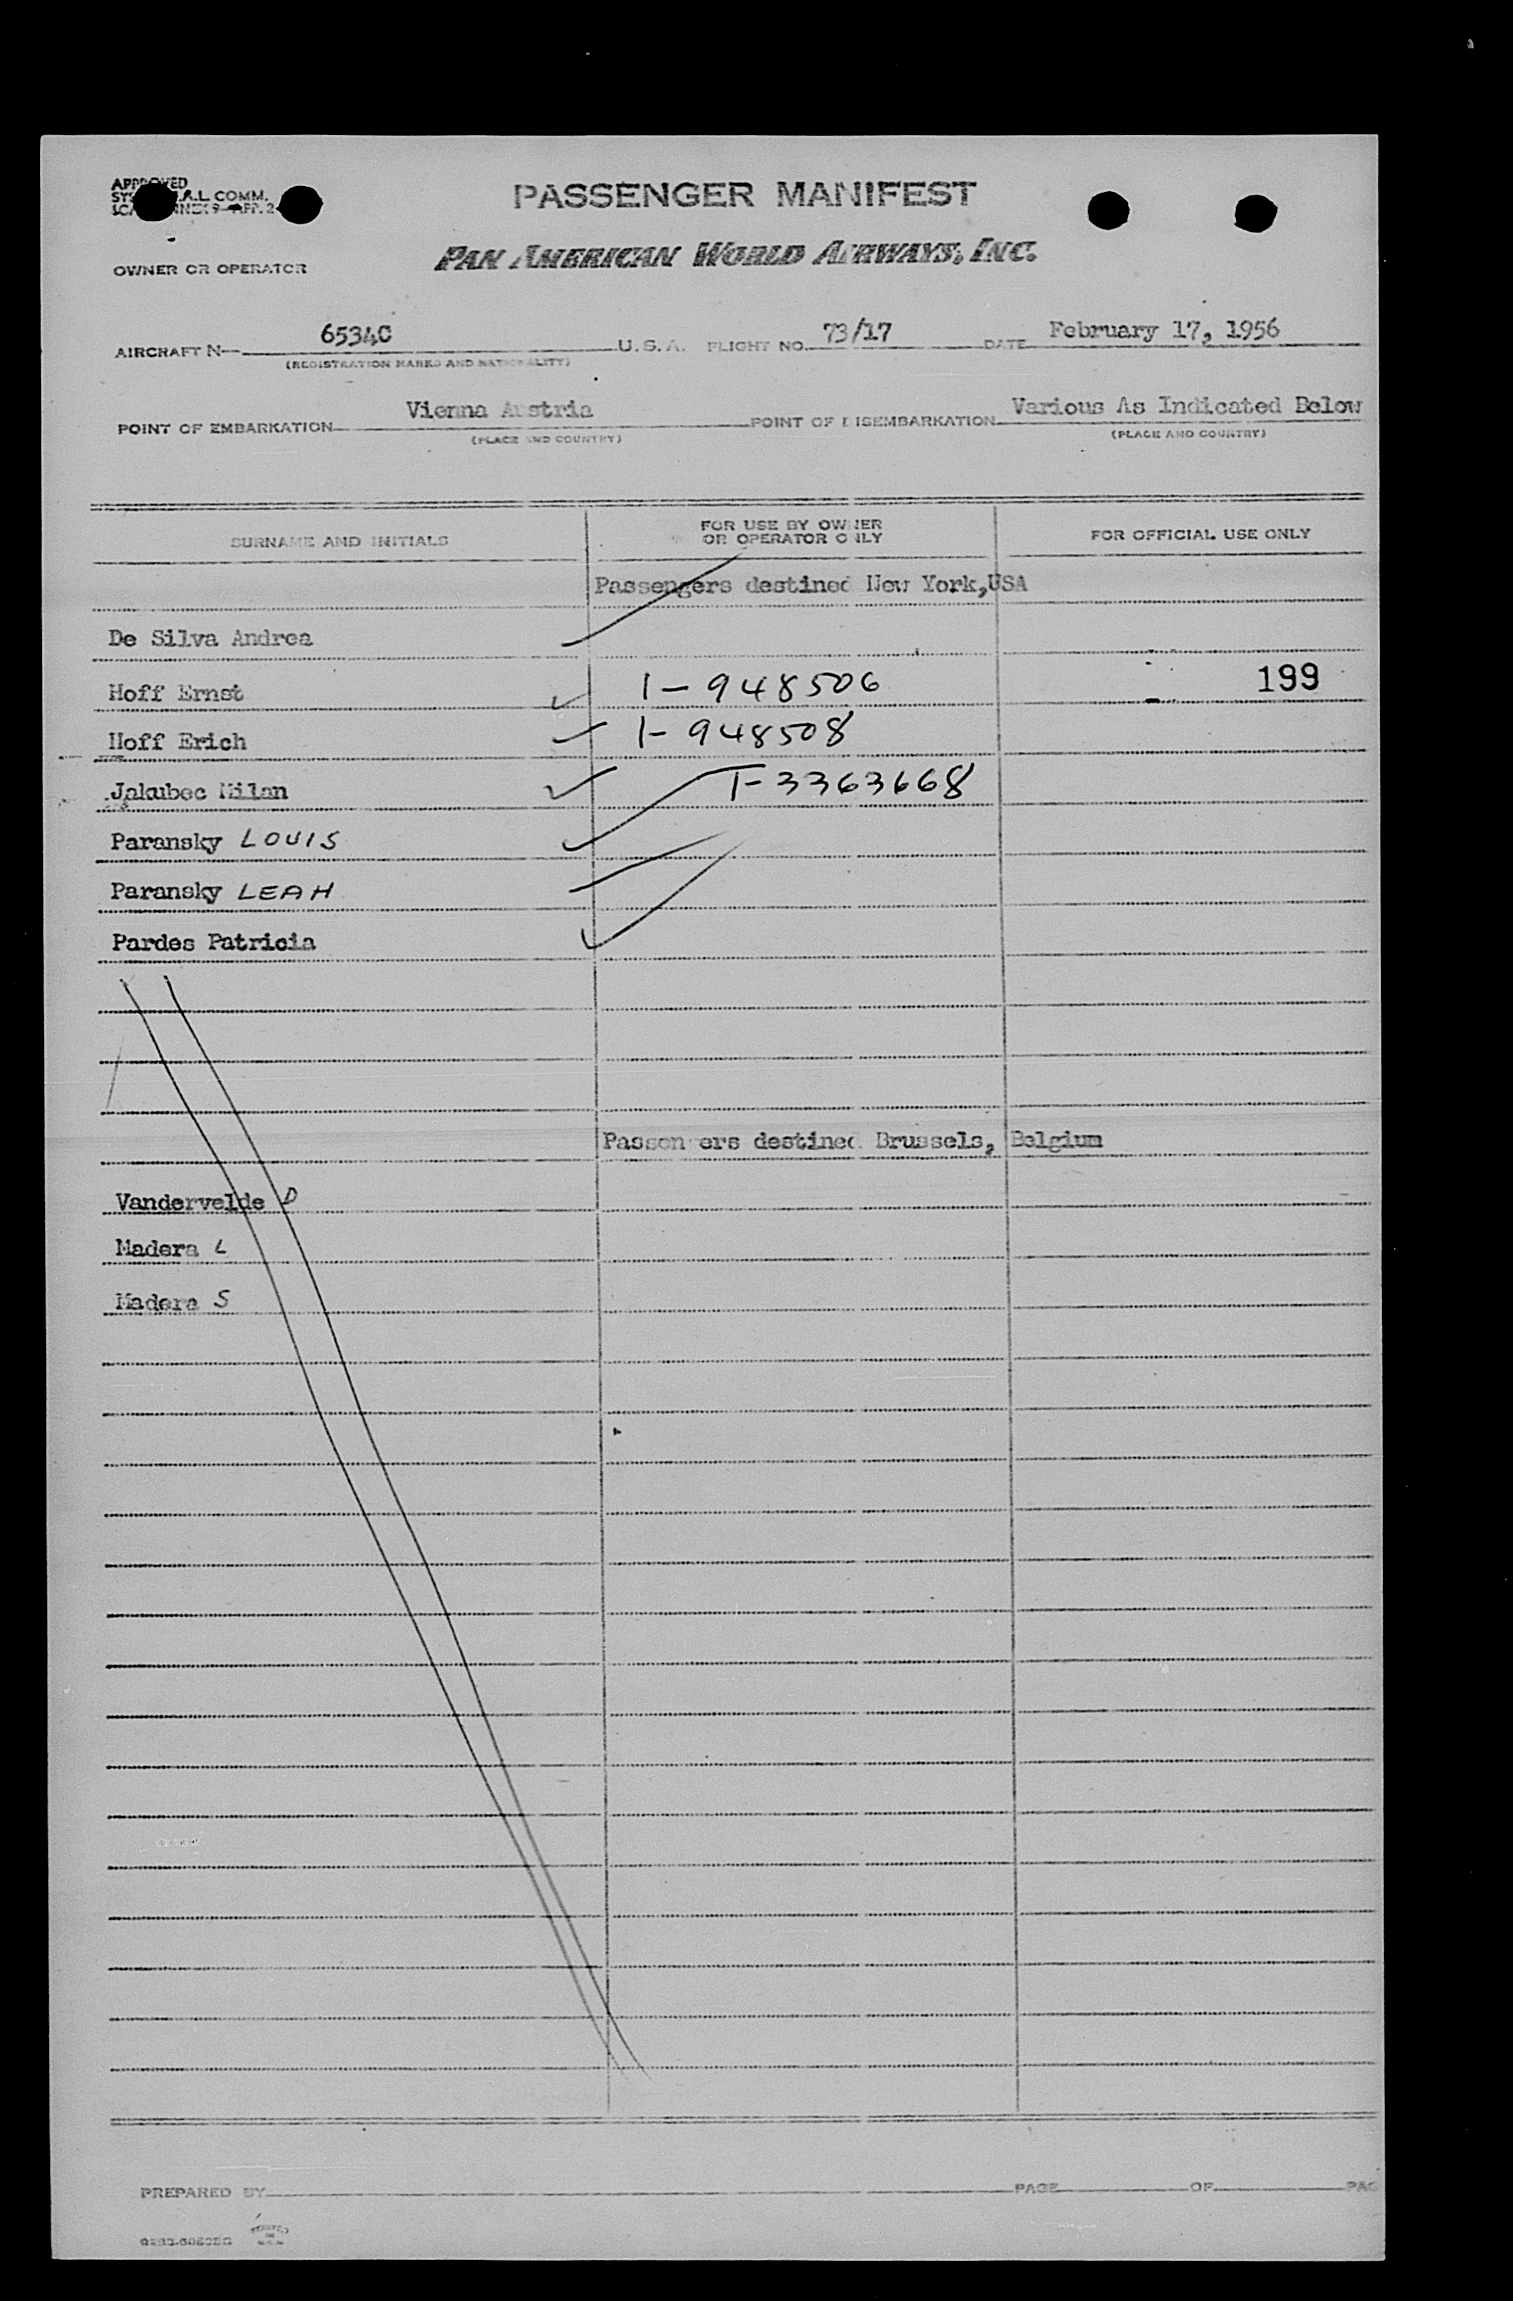 APPROVED
COMM.
PASSENGER MANIFEST
OWNER OR OPERATOR
PAN AMERICAN WORLD AIRWAYS, INC.
AIRCRAFT N— 6534C U. S. A. FLIGHT NO. 73/17 DATE February 17, 1956
(REGISTRATION MARKS AND NATIONALITY)
POINT OF EMBARKATION Vienna Austria POINT OF DISEMBARKATION Various As Indicated Below
(PLACE AND COUNTRY) (PLACE AND COUNTRY)
SURNAME AND INITIALS FOR USE BY OWNER OR OPERATOR ONLY FOR OFFICIAL USE ONLY
Passengers destined New York,USA
De Silva Andrea
Hoff Ernst 1-948506 199
Hoff Erich 1-948508
Jakubec Milan T-3363668
Paransky LOUIS
Paransky LEAH
Pardes Patricia
Passengers destined Brussels, Belgium
Vandervelde D
Madera L
Madera S
PREPARED BY PAGE OF PAG